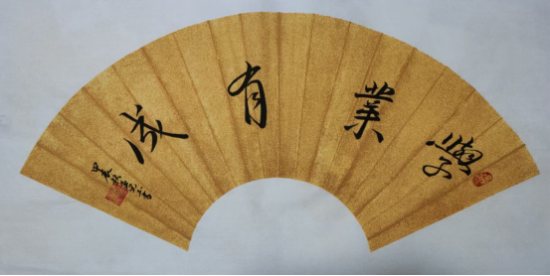 學業有成